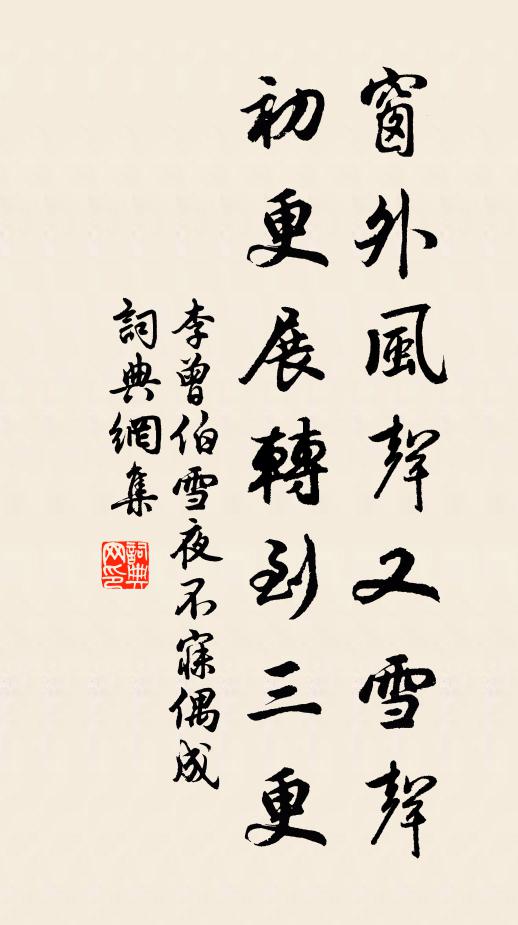 窗外風聲又雪聲
初更展轉到三更
李曾伯雪夜不寐偶成
詞典網集
詞典网印